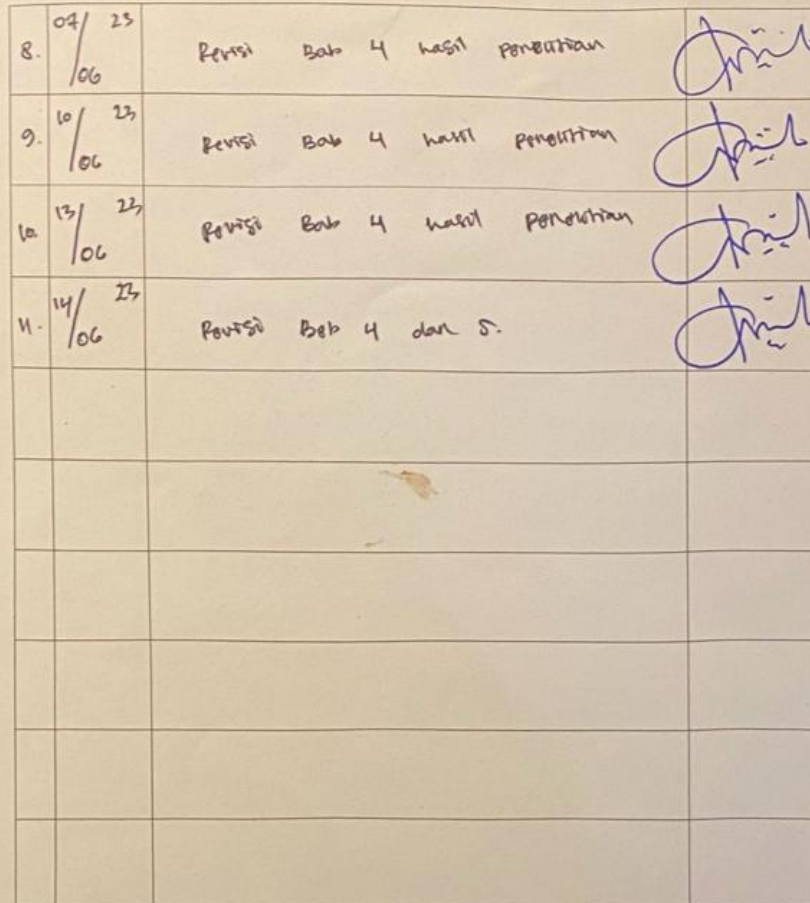 8. 07/06 23 Revisi Bab 4 hasil penelitian
9. 10/06 23 Revisi Bab 4 hasil penelitian
10. 13/06 23 Revisi Bab 4 hasil penelitian
11. 14/06 23 Revisi Bab 4 dan 5.